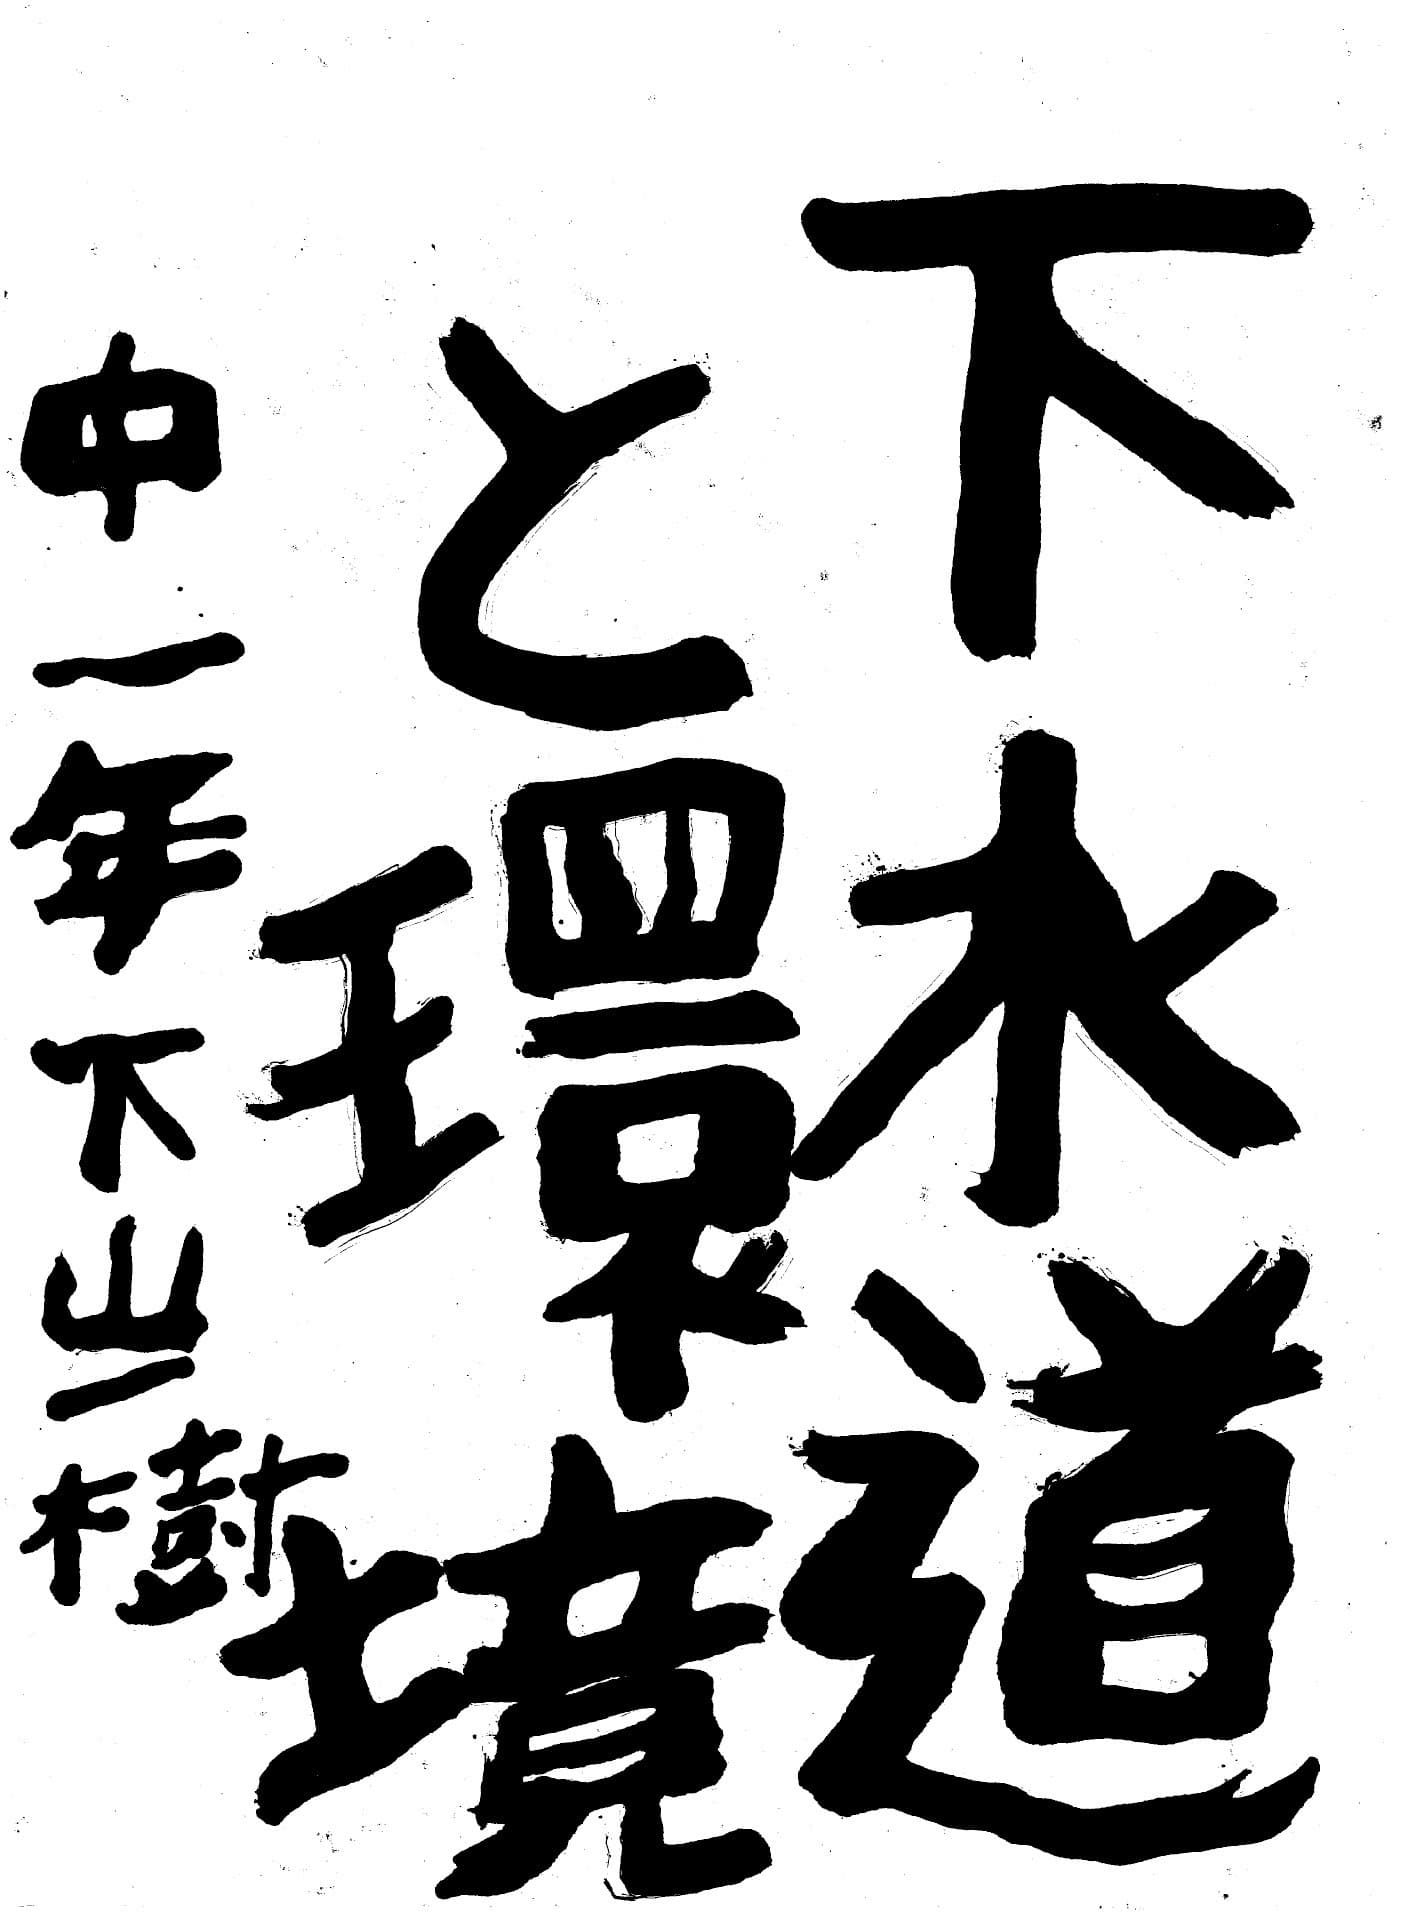 下水道
と環境
中一年下山一樹